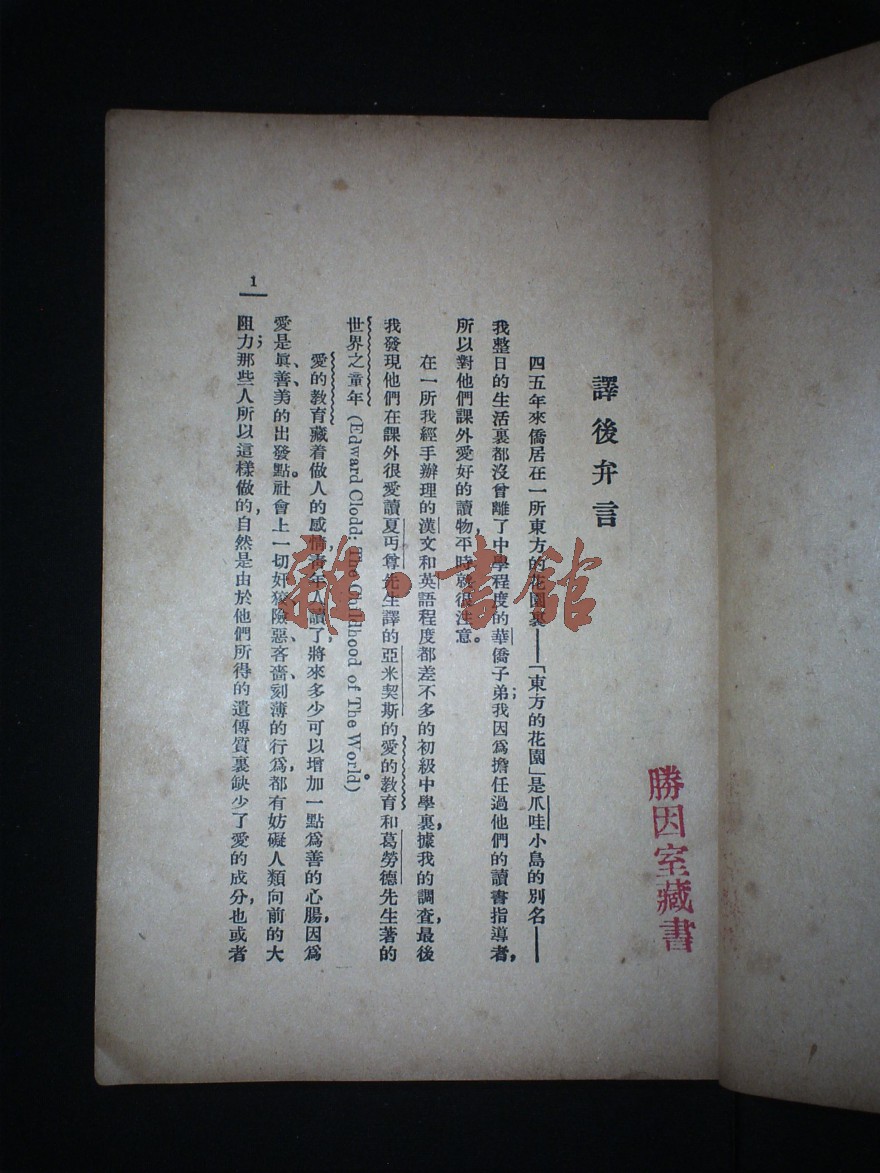 譯後弁言
四五年來僑居在一所東方的花園裏——「東方的花園」是爪哇小島的別名——
我整日的生活裏都沒曾離了中學程度的華僑子弟;我因爲擔任過他們的讀書指導者,
所以對他們課外愛好的讀物,平時就很注意。
在一所我經手辦理的漢文和英語程度都差不多的初級中學裏,據我的調查,最後
我發現他們在課外很愛讀夏丏尊先生譯的亞米契斯的愛的教育和葛勞德先生著的
世界之童年 (Edward Clodd: The Childhood of The World)。
愛的教育藏着做人的感情,靑年人讀了,將來多少可以增加一點爲善的心腸,因爲
愛是眞、善、美的出發點。社會上一切奸猾、險惡、吝嗇、刻薄的行爲,都有妨礙人類向前的大
阻力;那些人所以這樣做的,自然是由於他們所得的遺傳質裏缺少了愛的成分,也或者
1
勝因室藏書
雜·書館